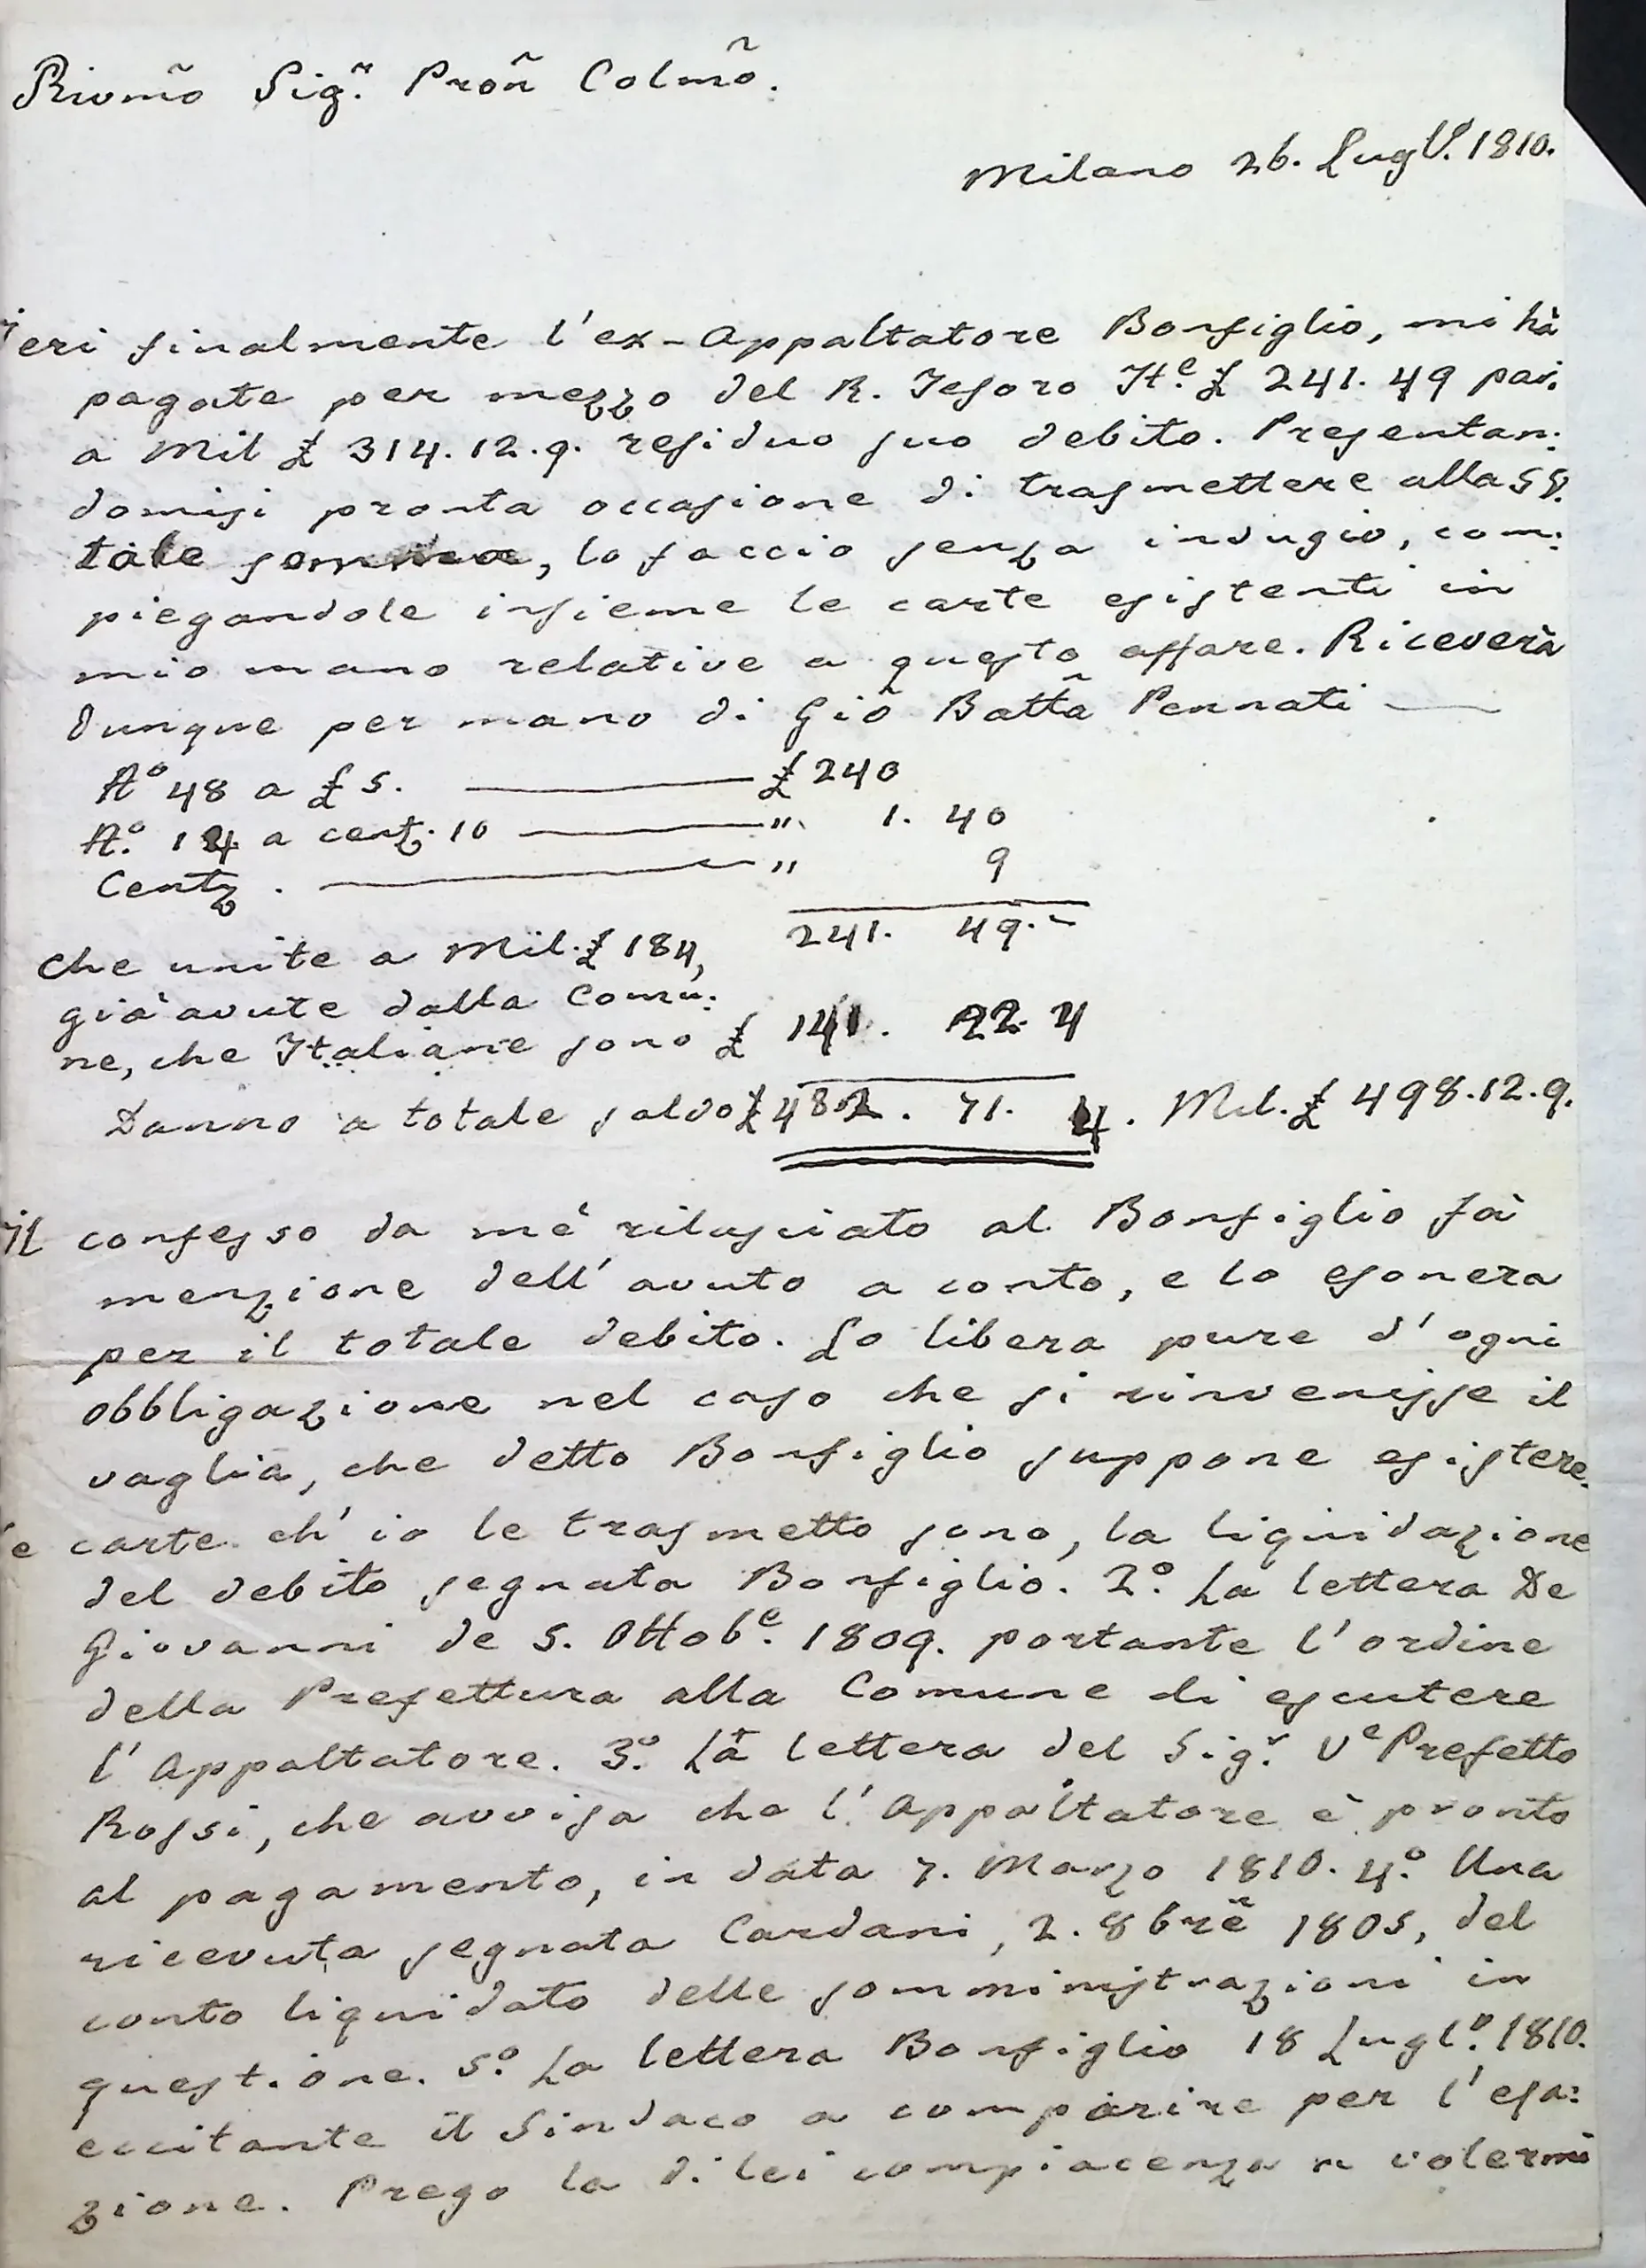 Rivm̃o Sig.r Pron̄ Colm̃o.
Milano 26. Lugl.o 1810.
ieri finalmente l'ex-Appaltatore Bonfiglio, mi hà
pagate per mezzo del R. Tesoro It.e £ 241. 49 pari
a Mil £ 314.12.9. residuo suo debito. Presentan:
domisi pronta occasione di trasmettere alla S V.
tale somma, lo faccio senza indugio, com:
piegandole insieme le carte esistenti in
mio mano relative a questo affare. Riceverà
dunque per mano di Gio Batta Pennati
N.o 48 a £ 5. £ 240
N.o 14 a cent. 10 " 1. 40
Cent. " 9
241. 49.-
che unite a Mil. £ 184,
già avute dalla Comu:
ne, che Italiane sono £ 141. 22. 4
Danno a totale saldo £ 482. 71. 4. Mil. £ 498.12.9.
Il confesso da mè rilasciato al Bonfiglio fà
menzione dell'avuto a conto, e lo esonera
per il totale debito. Lo libera pure d'ogni
obbligazione nel caso che si rinvenisse il
vaglia, che detto Bonfiglio suppone esistere.
Le carte ch'io le trasmetto sono, la liquidazione
del debito segnata Bonfiglio. 2.o La lettera De
Giovanni de 5. Ottob.e 1809. portante l'ordine
della Prefettura alla Comune di escutere
l'Appaltatore. 3.o La lettera del Sig.r V.e Prefetto
Rossi, che avvisa che l'Appaltatore è pronto
al pagamento, in data 7. Marzo 1810. 4.o Una
ricevuta segnata Cardani, 2. 8brẽ 1805, del
conto liquidato delle somministrazioni in
questione. 5.o La lettera Bonfiglio 18 Lugl.o 1810.
eccitante il Sindaco a comparire per l'esa:
zione. Prego la di lei compiacenza a volermi